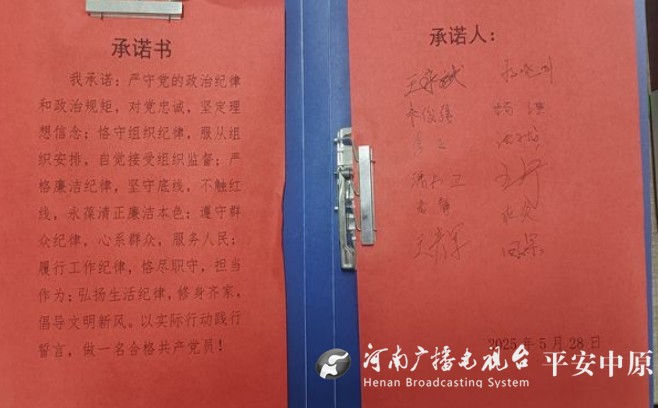 承诺书
我承诺：严守党的政治纪律
和政治规矩，对党忠诚，坚定理
想信念；恪守组织纪律，服从组
织安排，自觉接受组织监督；严
格廉洁纪律，坚守底线，不触红
线，永葆清正廉洁本色；遵守群
众纪律，心系群众，服务人民；
履行工作纪律，恪尽职守，担当
作为；弘扬生活纪律，修身齐家，
倡导文明新风。以实际行动践行
誓言，做一名合格共产党员！
承诺人：
2025年5月28日
河南广播电视台 平安中原
Henan Broadcasting System